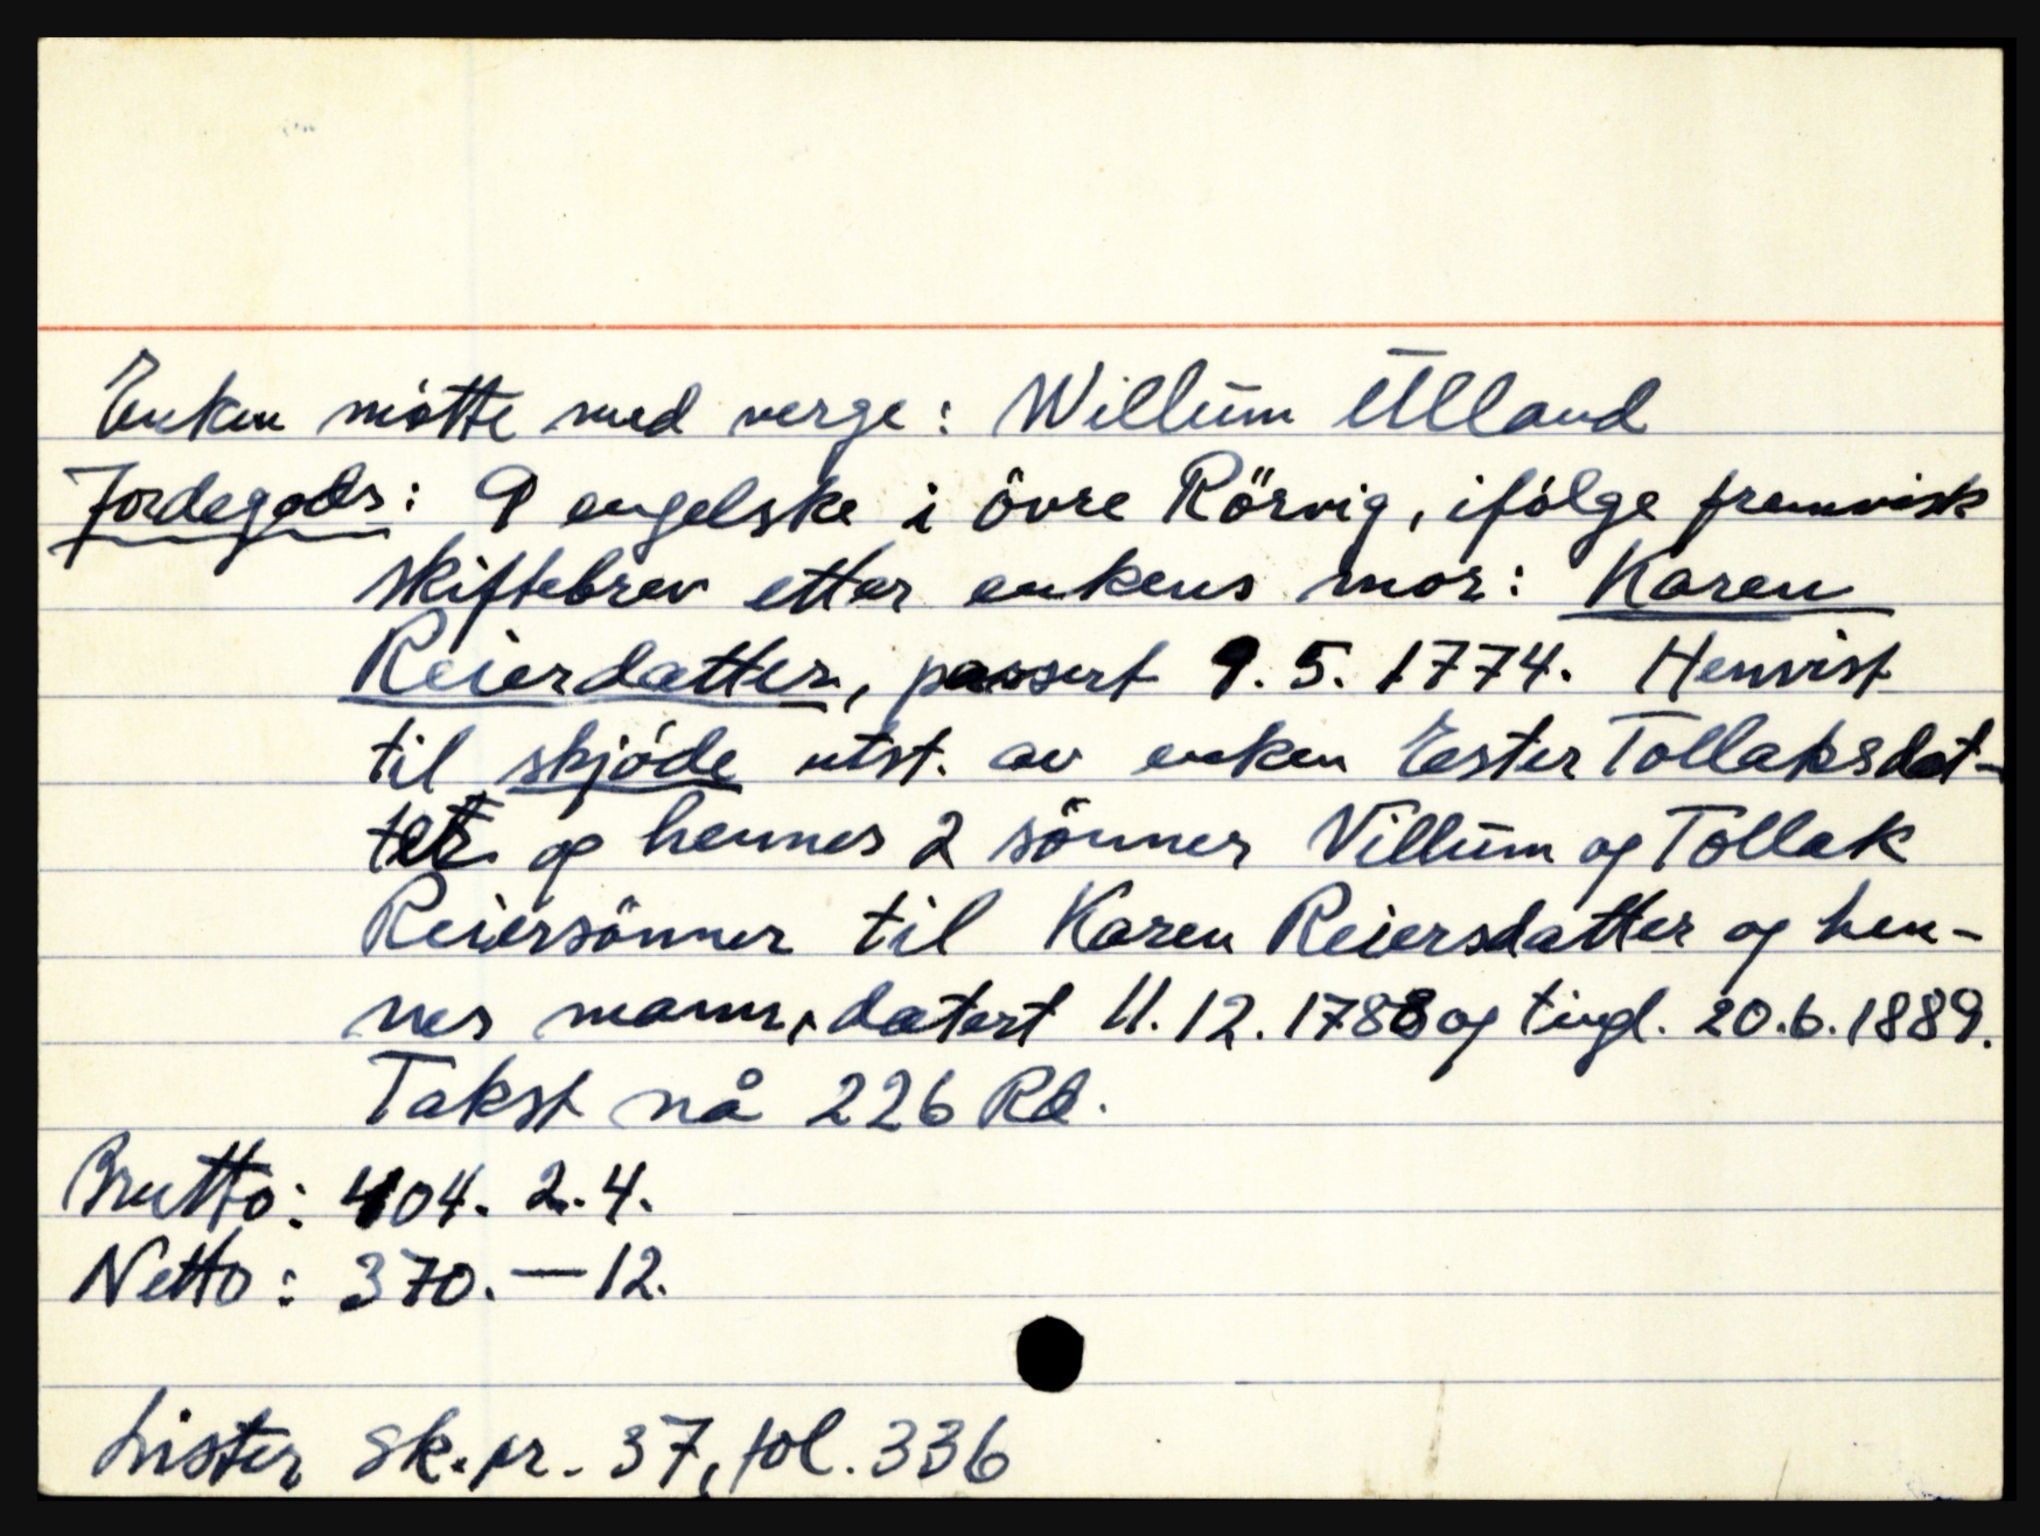 Enken mötte med verge: Willum Ulland
Jordegods: 9 engelske i övre Rörvig, ifölge fremvisk
skiftebrev etter enkens mor: Karen
Reierdatter, passert 9.5.1774. Henvist
til skjöde utst. av enken Ester Tollaksdat-
ter og hennes 2 sönner Villum og Tollak
Reiersönner til Karen Reiersdatter og hen-
nes mann, datert 11.12.1788 og tingl. 20.6.1889.
Takst nå 226 Rd.
Brutto: 404. 2. 4.
Netto: 370. — 12.
Lister sk. pr. 37, fol. 336